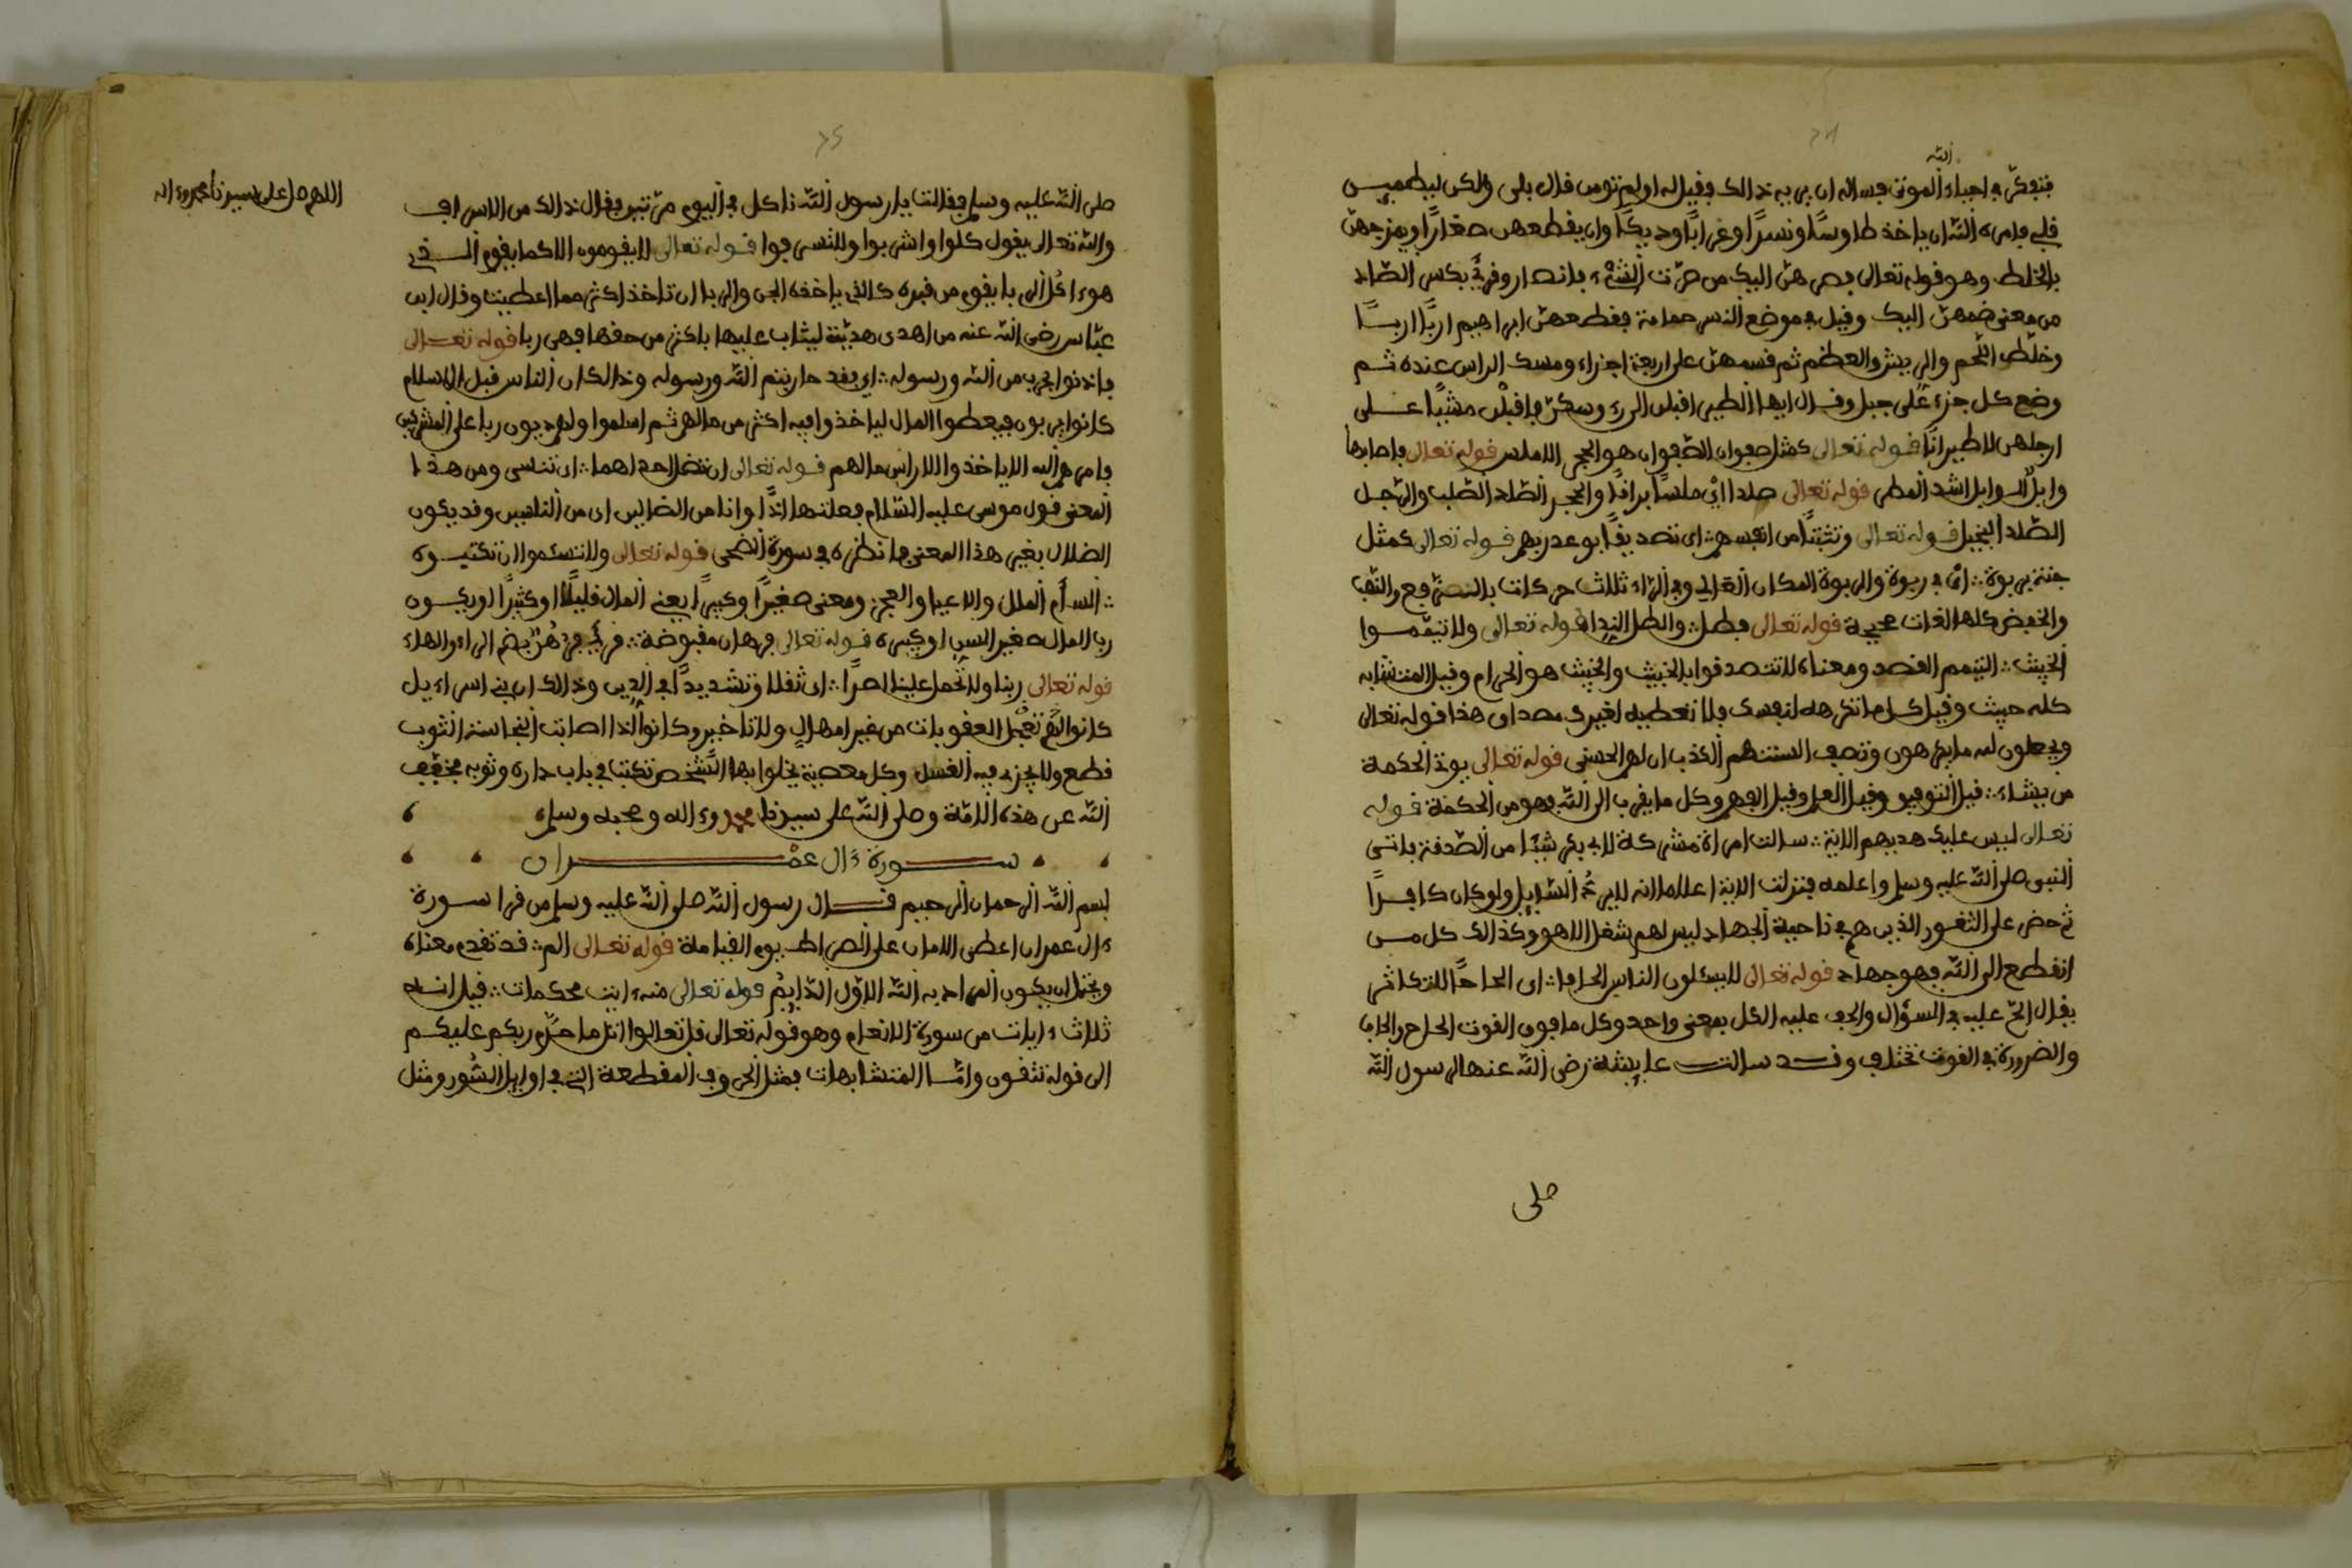 الله
فتفكّر في احياء الموتى فسأله ان يريه ذالك فقيل له اولم تومن قال بلى ولكن ليطمين
قلبي فامره الله ان ياخذ طاوسًا ونسرًا وغرابًا وديكًا وان يقطعهن صغارًا ويمزجهن
بالخلط وهو قوله تعالى فصرهنّ اليك من صرت الشيء بانصار وقرئ بكسر الصاد
من معنى ضمهنّ اليك وقيل في موضع النسر حمامة فقطعهنّ ابراهيم اربًا اربًا
وخلّط اللحم والريش والعظم ثم قسمهنّ على اربعة اجزاء ومسك الراس عنده ثم
وضع كل جزء على جبل وقال ايها الطير اقبلن الي فاقبلن مشيًا على
ارجلهن لا طيرانًا قوله تعالى كمثل صفوان الصفوان هو الحجر الاملس قوله تعالى فاصابها
وابل الوابل اشد المطر قوله تعالى صلدا اي ملسًا براقًا والحجر الصّلد الصّلب والرجل
الصّلد البخيل قوله تعالى وتثبيتًا من انفسهم اى تصديقًا بوعد ربهم قوله تعالى كمثل
جنة بربوة اي في ربوة والربوة المكان العالي وفي الراء ثلاث حركات بالنصب والرفع
والخفض كلها لغات صحيحة قوله تعالى فطل والطل الندا قوله تعالى ولا تيمّموا
الخبيث التيمم القصد ومعناه لا تتصدقوا بالخبيث والخبيث هو الحرام وقيل المتشابه
كله خبيث وقيل كل ما تكرهه لنفسك فلا تعطيه لغيرك مصداق هذا قوله تعالى
ويجعلون لله ما يكرهون وتصف السنتهم الكذب ان لهم الحسنى قوله تعالى يوتي الحكمة
من يشاء قيل التوفيق وقيل العلم وقيل الفهم وكل ما يقرب الى الله فهو من الحكمة قوله
تعالى ليس عليك هديهم الاية سالت امراة مشركة لابي بكر شيئًا من الصّدقة فاتى
النبي صلى الله عليه وسلم واعلمه فنزلت الاية اعلاما انه لا يردّ السّايل ولو كان كافرًا
ثم حض على الثغور الذين هم في ناحية الجهاد ليس لهم شغل الا هو وكذالك كل من
انقطع الى الله فهو جهاد قوله تعالى لا يسئلون الناس الحافا اى الحاحًا للتكاثر
يقال الحّ عليه في السؤال والحف عليه الكل بمعنى واحد وكل ما فوق القوت الحاح والحاف
والضرورة في القوت تختلف وقد سالت عايشة رضي الله عنها لرسول الله
صلى
صلى الله عليه وسلم فقالت يا رسول الله ناكل في اليوم مرّتين فقال ذالك من الاسراف
والله تعالى يقول كلوا واشربوا ولا تسرفوا قوله تعالى لا يقومون الا كما يقوم الذي
هو اكل الربا يقوم من قبره كالذي ياخذه الجن والربا ان تاخذ اكثر مما اعطيت وقال ابن
عبّاس رضي الله عنه من اهدى هديّة ليثاب عليها باكثر من حقها فهي ربا قوله تعالى
فاذنوا بحرب من الله ورسوله اى فقد حاربتم الله ورسوله وذالك ان الناس قبل الاسلام
كانوا يربون فيعطوا المال لياخذوا فيه اكثر من مالهم ثم اسلموا ولهم ديون ربا على المشركين
فامرهم الله الا ياخذوا الا راس مالهم قوله تعالى ان تضل احداهما اى تنسى ومن هذا
المعنى قول موسى عليه السّلام فعلتها اذًا وانا من الضالين اى من الناسين وقد يكون
الضلال بغير هذا المعنى فانظره في سورة الضحى قوله تعالى ولا تسئموا ان تكتبوه
السأم الملل والاعيا والعجز ومعنى صغيرًا وكبيرًا يعني المال قليلًا او كثيرًا او يكون
ربا المال صغير السن او كبيره قوله تعالى فرهان مقبوضة قرئ فرُهُنٌ بضم الراء والهاء
قوله تعالى ربنا ولا تحمل علينا اصرًا اى ثقلا وتشديدًا في الدين وذالك ان بني اسراءيل
كانوا لهم تعجّل العقوبات من غير امهال ولا تاخير وكانوا اذا اصابت النجاسة الثوب
قطع ولا يجزي فيه الغسل وكل معصية يخلوا بها الشخص تكتب في باب داره وثوبه فخفف
الله عن هذه الامّة وصلى الله على سيدنا محمد وءاله وصحبه وسلم
سورة ءال عمران
بسم الله الرحمان الرحيم قال رسول الله صلى الله عليه وسلم من قرا سورة
ءال عمران اعطى الامان على الصراط يوم القيامة قوله تعالى الم قد تقدم معناه
ويحتمل ان يكون المراد به الله الاوّل الدّايم قوله تعالى منه ءايت محكمات قيل انه
ثلاث ءايات من سورة الانعام وهو قوله تعالى قل تعالوا اتل ما حرّم ربكم عليكم
الى قوله تتقون وامّا المتشابهات فمثل الحروف المقطعة التي في اوايل السّور ومثل
اللهم صل على سيدنا محمد وءاله